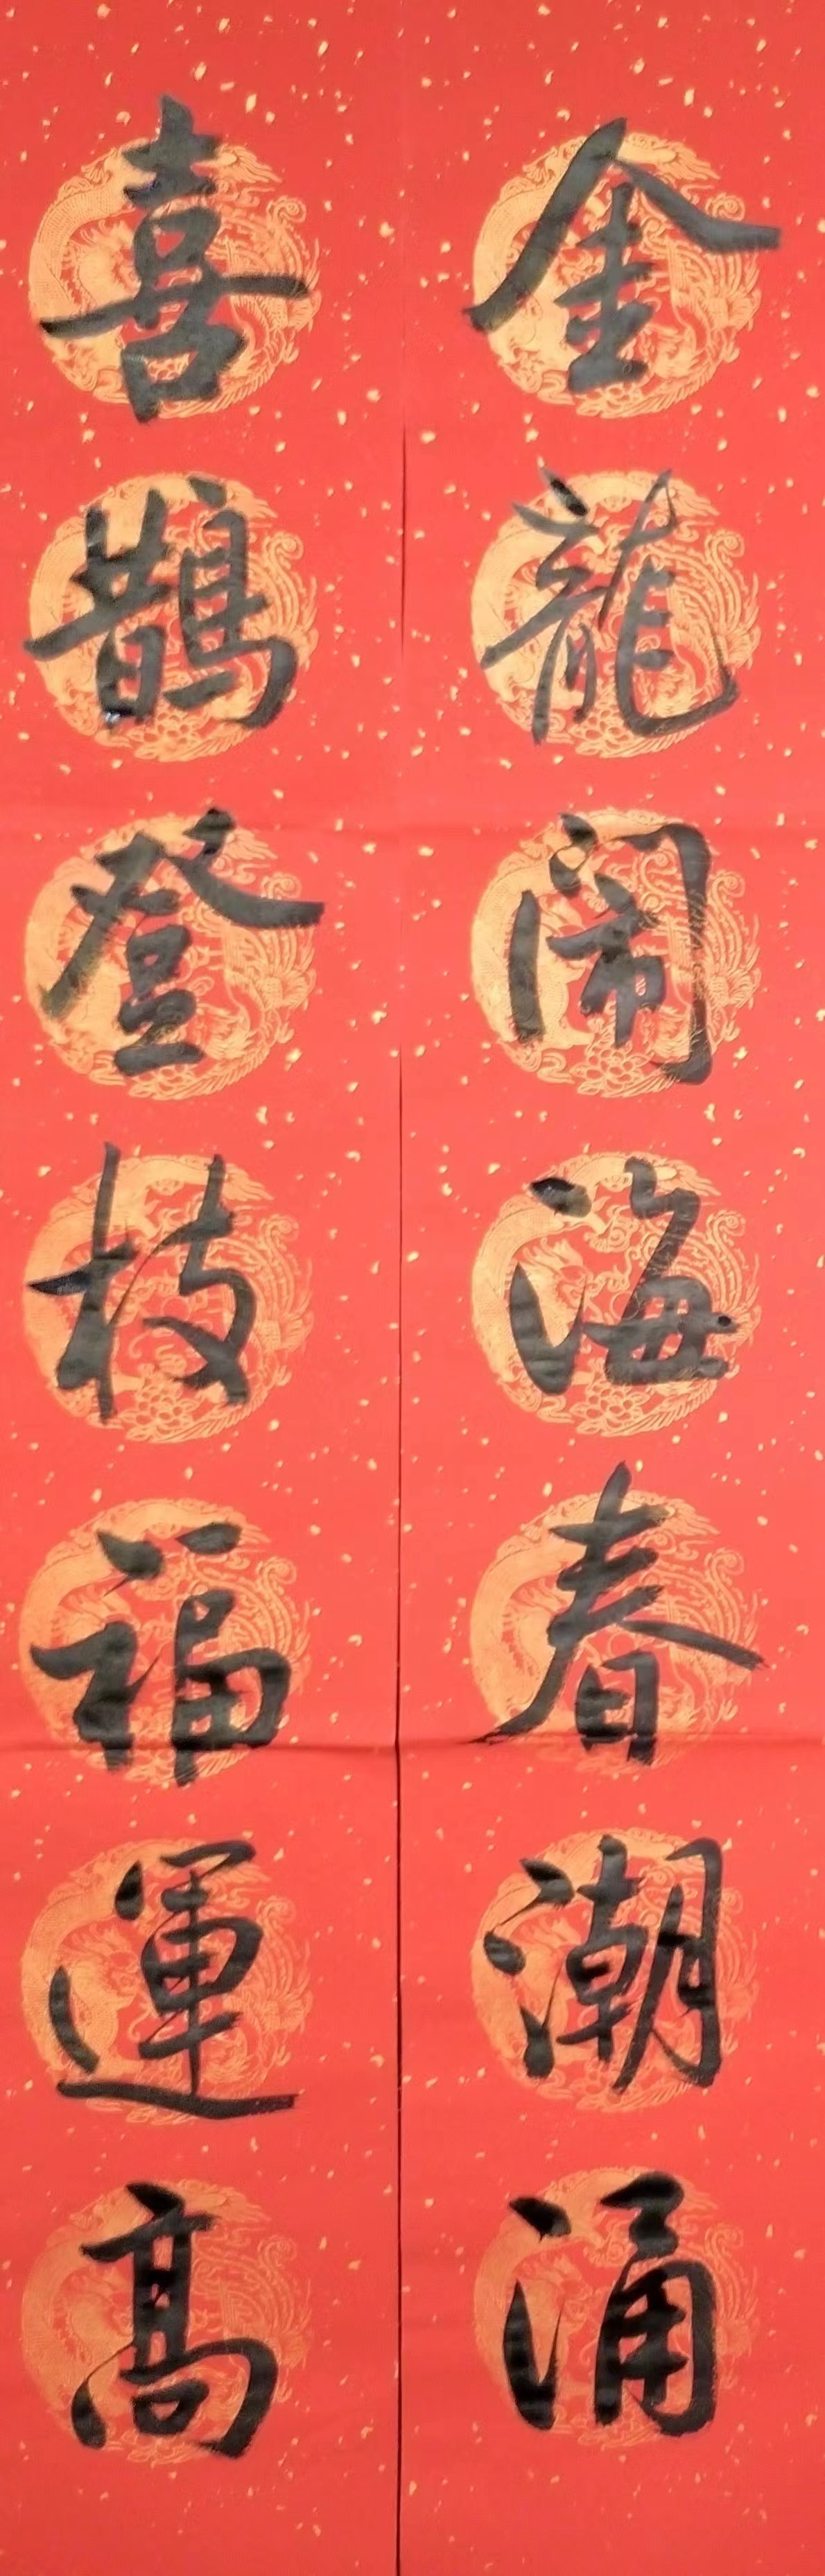 金龍闹海春潮涌
喜鵲登枝福運高